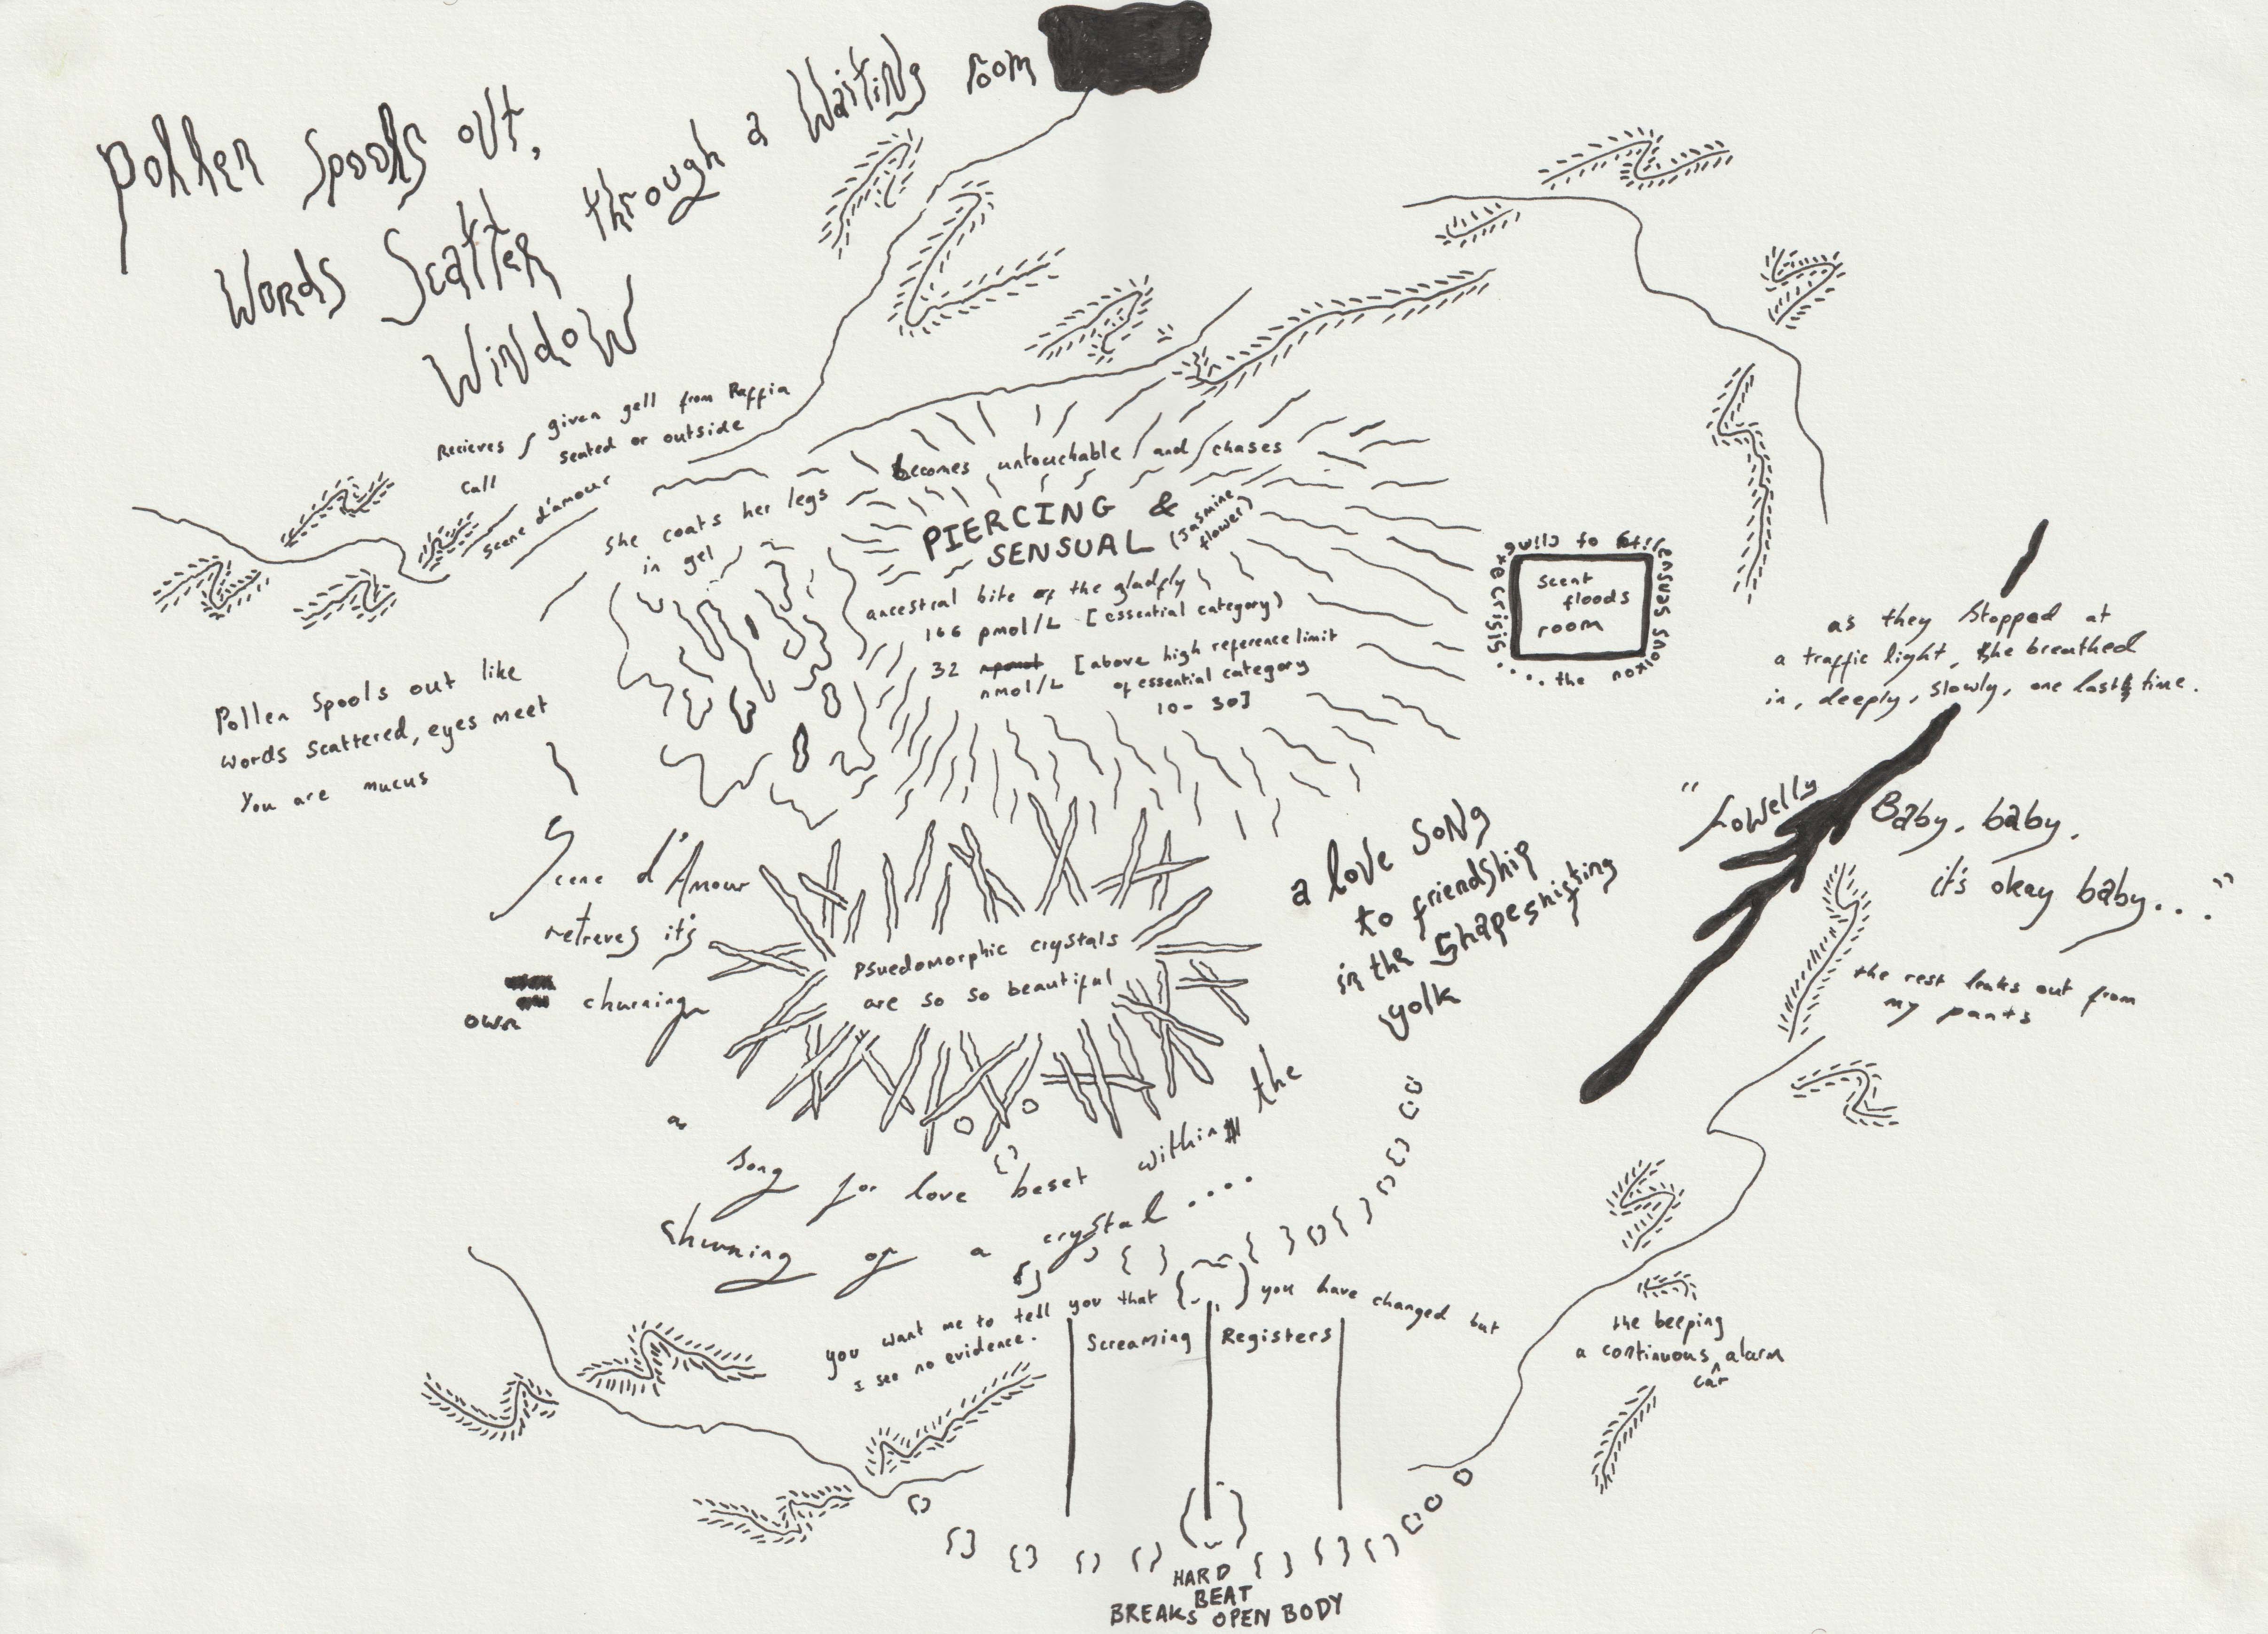 Pollen Spools out,
Words Scatter through a Waiting room
Window
Recieves / given gell from Raffia
call seated or outside
Scene d'amour
she coats her legs
in gel
becomes untouchable / and / chases
PIERCING &
SENSUAL (Jasmine
flower)
ancestral bite of the gladfly
166 pmol/L [essential category)
32 nmol/L [above high reference limit
of essential category
10-30]
scent
floods
room
....the noxious sensuality of climate crisis
as they stopped at
a traffic light, she breathed
in, deeply, slowly, one last time.
Pollen Spools out like
words scattered, eyes meet
You are mucus
"Lowelly Baby, baby,
it's okay baby..."
the rest leaks out from
my pants
Scene d'Amour
retreves its
own churning
Psuedomorphic crystals
are so so beautiful
a love song
to friendship
in the shapeshifting
yolk
a
song for love beset within the
churning of a crystal ....
you want me to tell you that { } you have changed but
I see no evidence.
Screaming Registers
the beeping
a continuous car alarm
HARD
BEAT
BREAKS OPEN BODY